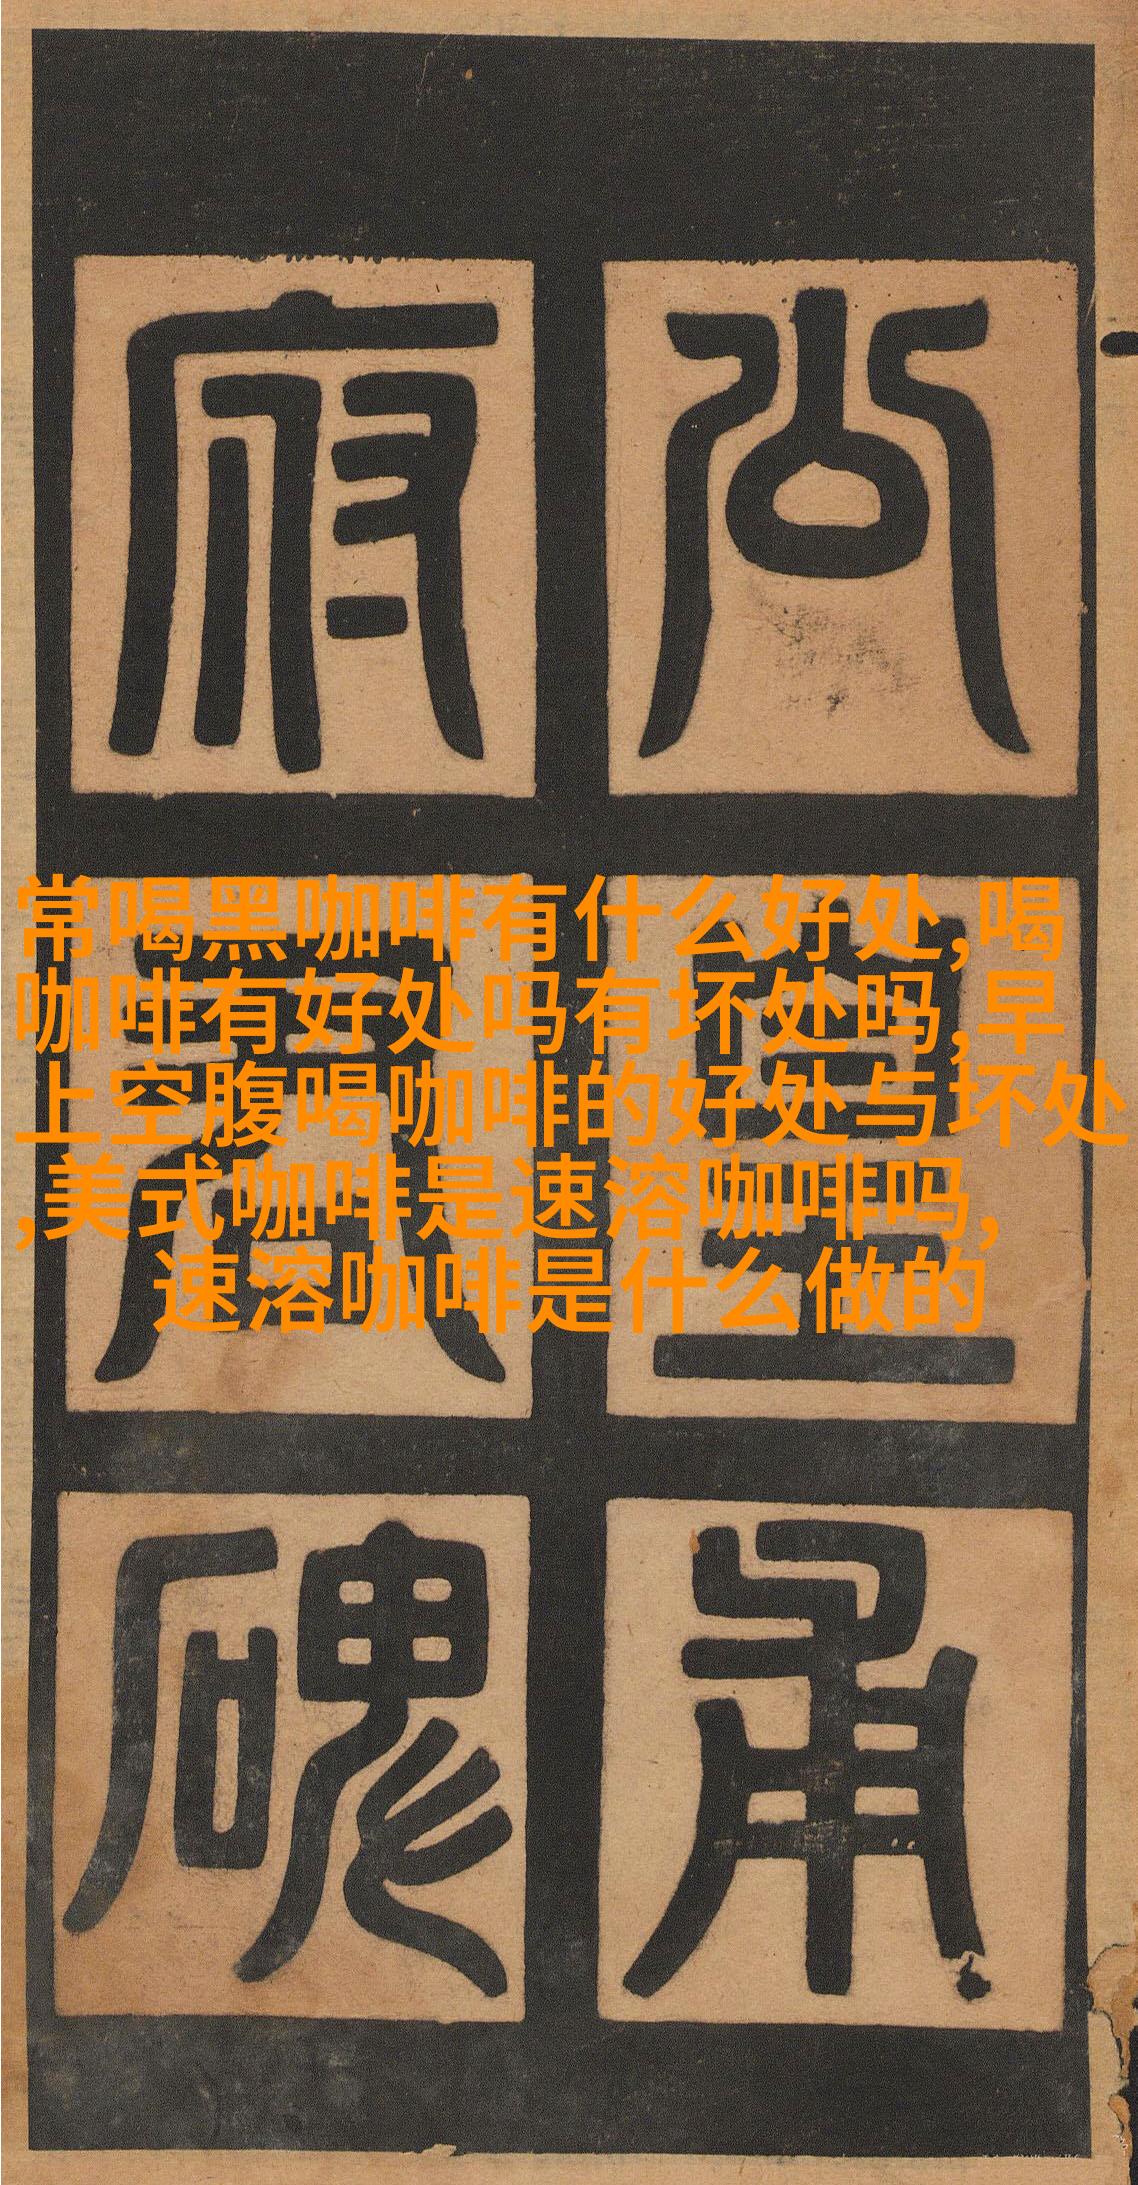 公皇甫
府君碑
常喝黑咖啡有什么好处,喝
咖啡有好处吗有坏处吗,早
上空腹喝咖啡的好处与坏处
,美式咖啡是速溶咖啡吗,
速溶咖啡是什么做的